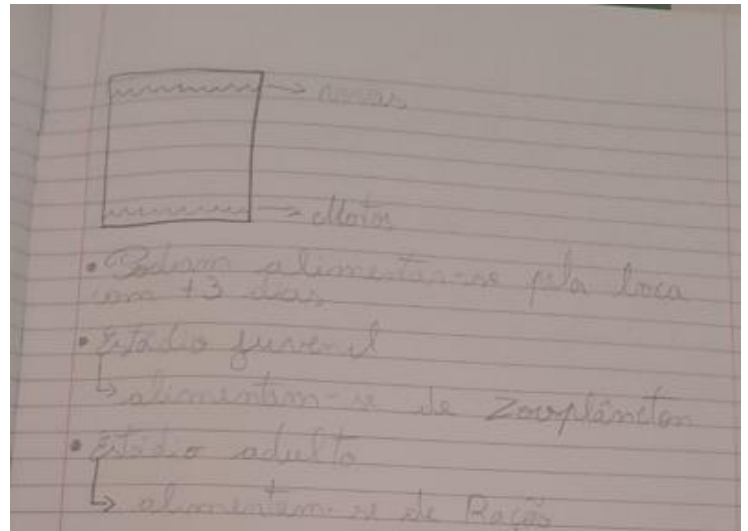 → 
→ Mortos
• Podem alimentar-se pela boca
com +3 dias
• Estádio juvenil
↳ alimentam-se de Zooplâncton
• Estádio adulto
↳ alimentam-se de Ração